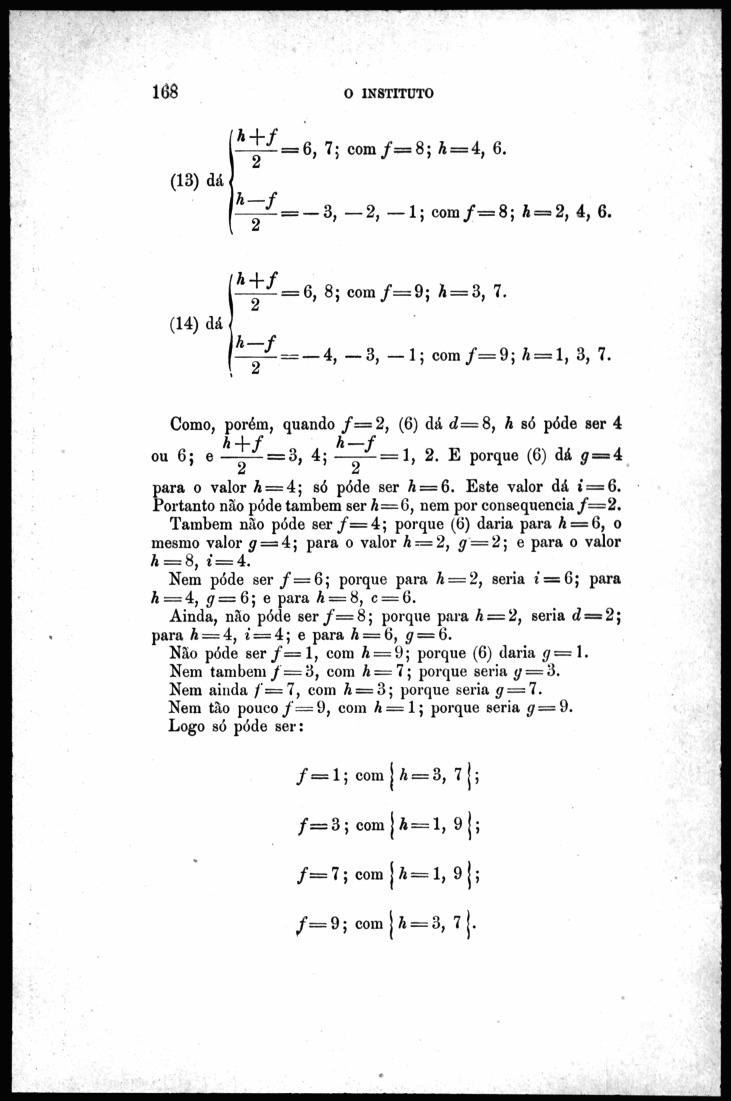 168 O INSTITUTO
(13) dá { (h+f)/2 = 6, 7; com f=8; h=4, 6.
(h—f)/2 = —3, —2, —1; com f=8; h=2, 4, 6.
(14) dá { (h+f)/2 = 6, 8; com f=9; h=3, 7.
(h—f)/2 = —4, —3, —1; com f=9; h=1, 3, 7.
Como, porém, quando f=2, (6) dá d=8, h só póde ser 4
ou 6; e (h+f)/2 = 3, 4; (h—f)/2 = 1, 2. E porque (6) dá g=4
para o valor h=4; só póde ser h=6. Este valor dá i=6.
Portanto não póde tambem ser h=6, nem por consequencia f=2.
Tambem não póde ser f=4; porque (6) daria para h=6, o
mesmo valor g=4; para o valor h=2, g=2; e para o valor
h=8, i=4.
Nem póde ser f=6; porque para h=2, seria i=6; para
h=4, g=6; e para h=8, c=6.
Ainda, não póde ser f=8; porque para h=2, seria d=2;
para h=4, i=4; e para h=6, g=6.
Não póde ser f=1, com h=9; porque (6) daria g=1.
Nem tambem f=3, com h=7; porque seria g=3.
Nem ainda f=7, com h=3; porque seria g=7.
Nem tão pouco f=9, com h=1; porque seria g=9.
Logo só póde ser:
f=1; com {h=3, 7};
f=3; com {h=1, 9};
f=7; com {h=1, 9};
f=9; com {h=3, 7}.